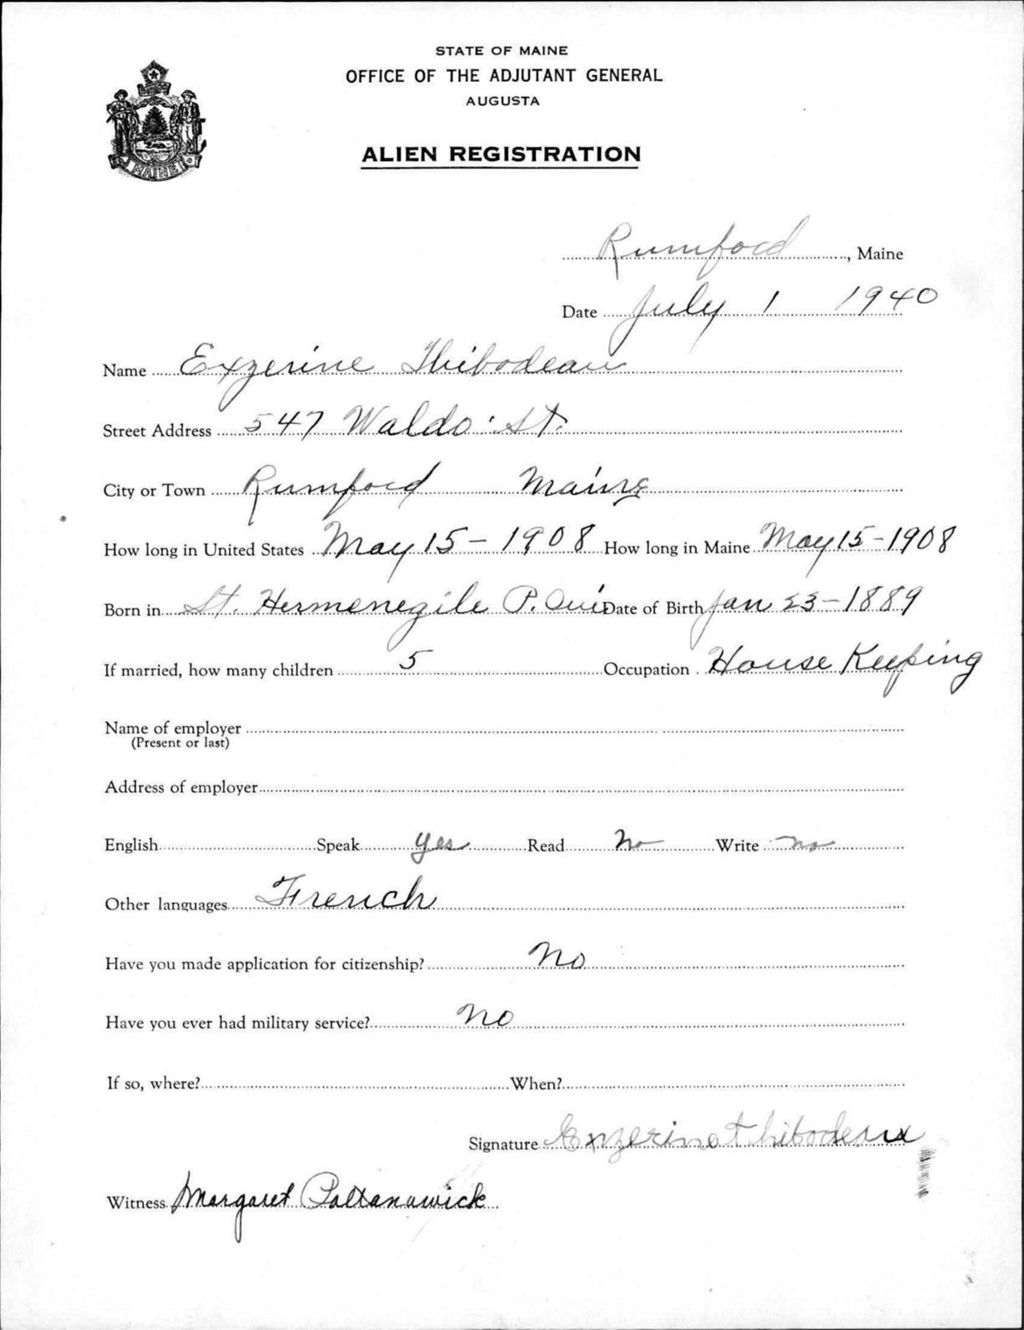 STATE OF MAINE
OFFICE OF THE ADJUTANT GENERAL
AUGUSTA
ALIEN REGISTRATION
MAINE
Rumford, Maine
Date July 1 1940
Name Exzerine Thibodeau
Street Address 547 Waldo St.
City or Town Rumford Maine
How long in United States May 15 - 1908 How long in Maine May 15 - 1908
Born in St. Hermenegile P. Que Date of Birth Jan 23 - 1889
If married, how many children 5 Occupation House Keeping
Name of employer
(Present or last)
Address of employer
English Speak yes Read No Write no
Other languages French
Have you made application for citizenship? No
Have you ever had military service? No
If so, where? When?
Signature Exzerine Thibodeau
Witness Margaret Paltanawick